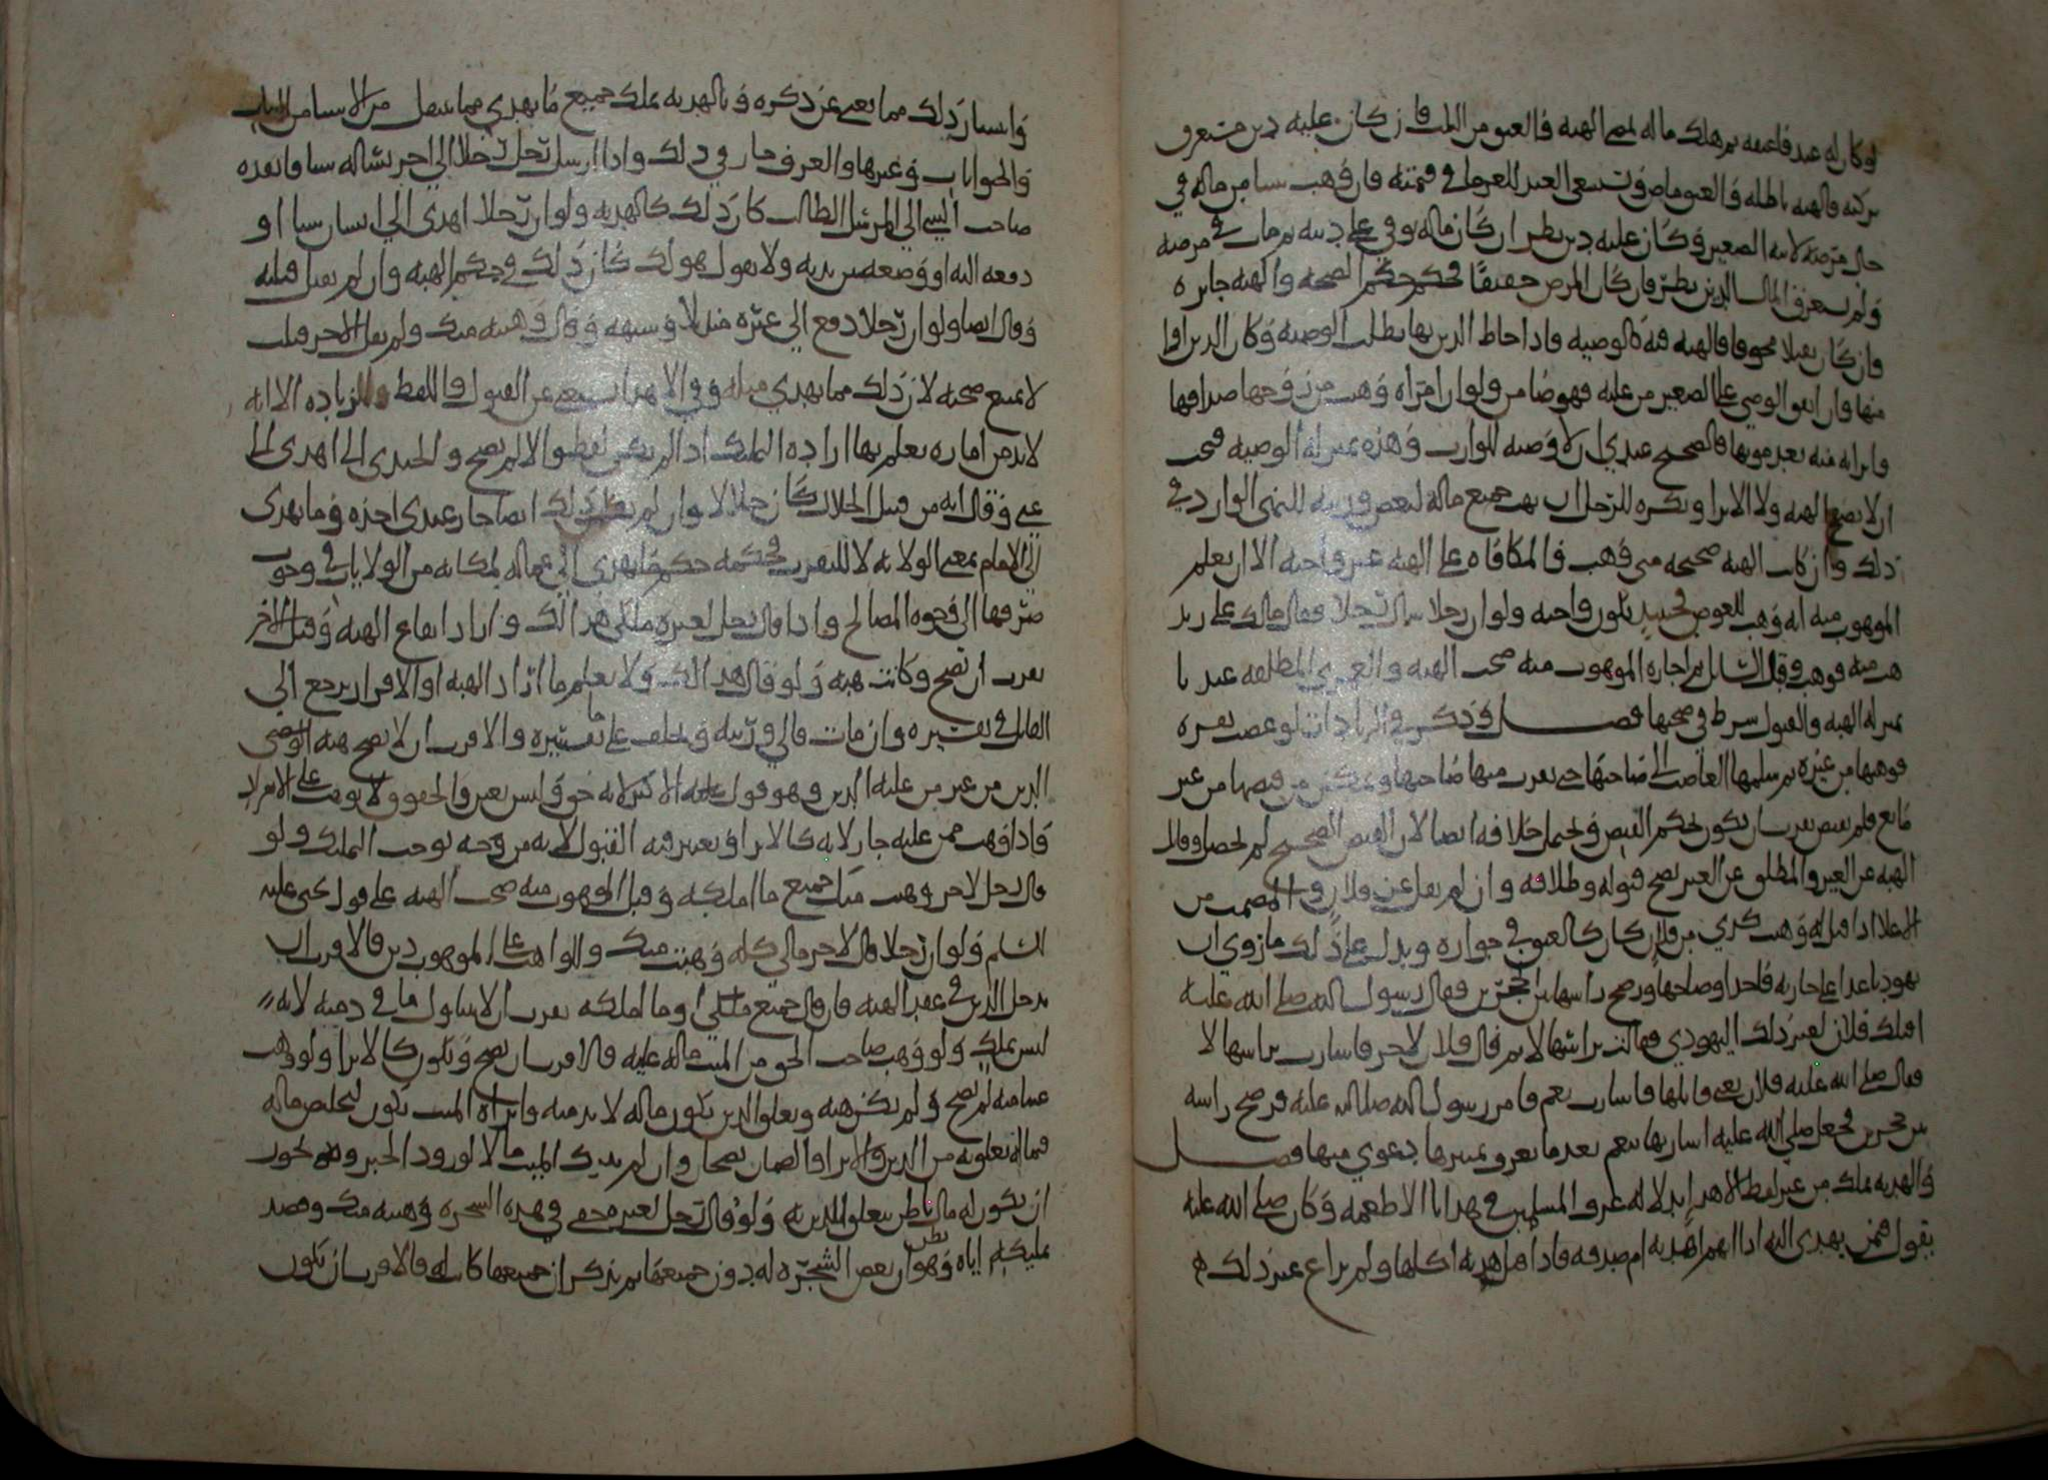 لو كان له عبد فاعتقه ثم هلك ماله لم تصح الهبة فالعتق من الثلث فان كان عليه دين مستغرق
تركته فالهبه باطله والعتق ماض وتسعى العبد للغرما في قيمته فان وهب شيا من ماله في
حال مرضه لابنه الصغير وكان عليه دين نظر ان كان ماله يوفي على دينه ثم مات في مرضه
ولم يستغرق المال الدين نظر فان كان المرض خفيفا فحكمه حكم الصحه والهبه جايزه
وان كان ثقيلا مخوفا فالهبه فيه كالوصيه فاذا احاط الدين بها بطلت الوصيه وكان الدين اولى
منها وان انفق الوصي على الصغير من غلته فهو ضامن ولو ان امراه وهبت من زوجها صداقها
وابراته منه بعد موتها فالصحيح عندي ان لا وصيه للوارث وهذه بمنزله الوصيه فيجب
ان لا تصح الهبه ولا الابرا ويكره للرجل ان يهب جميع ماله لبعض ورثته للنهي الوارد في
ذلك وان كانت الهبه صحيحه متى وهب فالمكافاه على الهبه غير واجبه الا ان يعلم
الموهوب منه انه وهب للعوض فحينيذ تكون واجبه ولو ان رجلا سال رجلا فقال مالك على زيد
هب منه فوهب وقبل السايل ثم اجازه الموهوب منه صحت الهبه والعـ المطلقه عندنا
بمنزله الهبه والقبول شرط في صحتها فصل وذكر في الزيادات لو غصب بقره
فوهبها من غيره ثم سلمها الغاصب الى صاحبها حتى يقرب منها صاحبها ويمكن من قبضها من غير
مانع فلم يقبض يقرب ان يكون لحكم القبض ويحتمل خلافه ايضا لان القبض الصحيح لم يحصل وقال
الهبه عن الغير والمطلق عن الغير يصح قبوله وطلاقه وان لم يقل عن فلان و المصمت من
الاعلا اذا قيل له وهبت كذي من فلان كان كالعتق في جوازه ويدل على ذلك ما روي ان
يهوديا عدا على جاريه فاخذ اوضاحها ورضخ راسها بين حجرين فقال رسول الله صلى الله عليه
اقتلك فلان لغير ذلك اليهودي فقالت براسها لا ثم قال فلان لاخر فاشارت براسها لا
فقال صلى الله عليه فلان يعني قاتلها فاشارت نعم فامر رسول الله صلى الله عليه فرضخ راسه
بين حجرين فجعل صلى الله عليه اشارتها بنعم بعد ما يعرف بمنزلها دعوى منها فصل
والهديه تملك من غير لفظ الاهدا بدلاله عرف المسلمين في هدايا الاطعمه وكان صلى الله عليه
يقول فمن يهدي اليه اذا اتهم اهديه ام صدقه فاذا قيل هديه اكلها ولم يراع غير ذلك
واشبار ذلك مما يغني عن ذكره وبالهديه يملك جميع ما يهدى مما ينقل من الاشيا من الثياب
والحيوانات وغيرها والعرف جار في ذلك واذا ارسل رجل رجلا الى اخر يساله شيا فانفذه
صاحب الشي الى المرسل الطالب كان ذلك كالهديه ولو ان رجلا اهدى الى انسان شيا او
دفعه اليه او وضعه بين يديه ولا يقول هو لك كان ذلك في حكم الهبه وان لم يقبل قبله
وقال ايضا ولو ان رجلا دفع الى غيره منديلا وشبهه وقال وهبته منك ولم يقل الاخر قبلت
لا يمنع صحته لان ذلك مما يهدى مثله وفي الاهدا يستغنى عن القبول واللفظ والزياده الا انه
لا بد من اماره يعلم بها اراده التمليك اذا لم يكن لفظ والا لم يصح والجندي اذا اهدى الى
غني وقال انه من قبل الحلال كان حلالا وان لم يقل ذلك ايضا جاز عندي اخذه وما يهدى
الى الامام بمعنى الولايه لا للتقرب فحكمه حكم ما يهدى الى عماله لمكانه من الولايات في وجوب
صرفها الى وجوه المصالح واذا قال رجل لغيره ملكي هذا لك واراد ايقاع الهبه وقبل الاخر
يقرب ان تصح وكانت هبه ولو قال هذا لك ولا يعلم ما اراد الهبه او الاقرار يرجع الى
القايل في تفسيره وان مات فالى ورثته ويحلف على ما تفسيره والاقرب ان لا تصح هبه الوصي
الدين من غير من عليه الدين وهو قول الاكثر لانه حق وليس بعين والحقوق لا توهب على الانفراد
واذا وهب ممن عليه جاز لانه كالابرا ويعتبر فيه القبول لانه من وجه يوجب التمليك ولو
قال رجل لاخر وهبت منك جميع ما املكه وقبل الموهوب منه صحت الهبه على قول يحيى عليه
السلم ولو ان رجلا قال لاخر مالي كله وهبته منك وللواهب على الموهوب دين فالاقرب ان
يدخل الدين في عقد الهبه فان قال جميع ملكي او ما املكه يقرب ان لا يتناول ما في ذمته لانه
ليس بملك ولو وهب صاحب الحق من الميت ماله عليه فالاقرب ان يصح ويكون كالابرا ولو وهب
عينا منه لم يصح ولم يكن هبه ويعلق الدين يكون ماله لا بد منه وابراه الميت يكون لتخلص ماله
فيما له تعلق به من الدين والابرا والضمان يصحان وان لم يترك الميت مالا لورود الخبر وهو يجوز
ان يكون له مال باطن يتعلق الدين به ولو قال رجل لغيره حقي في هذه الشجره وهبته منك وقصد
تمليكه اياه وهو يظن ان بعض الشجره له دون جميعها ثم يذكر ان جميعها كان له فالاقرب ان يكون